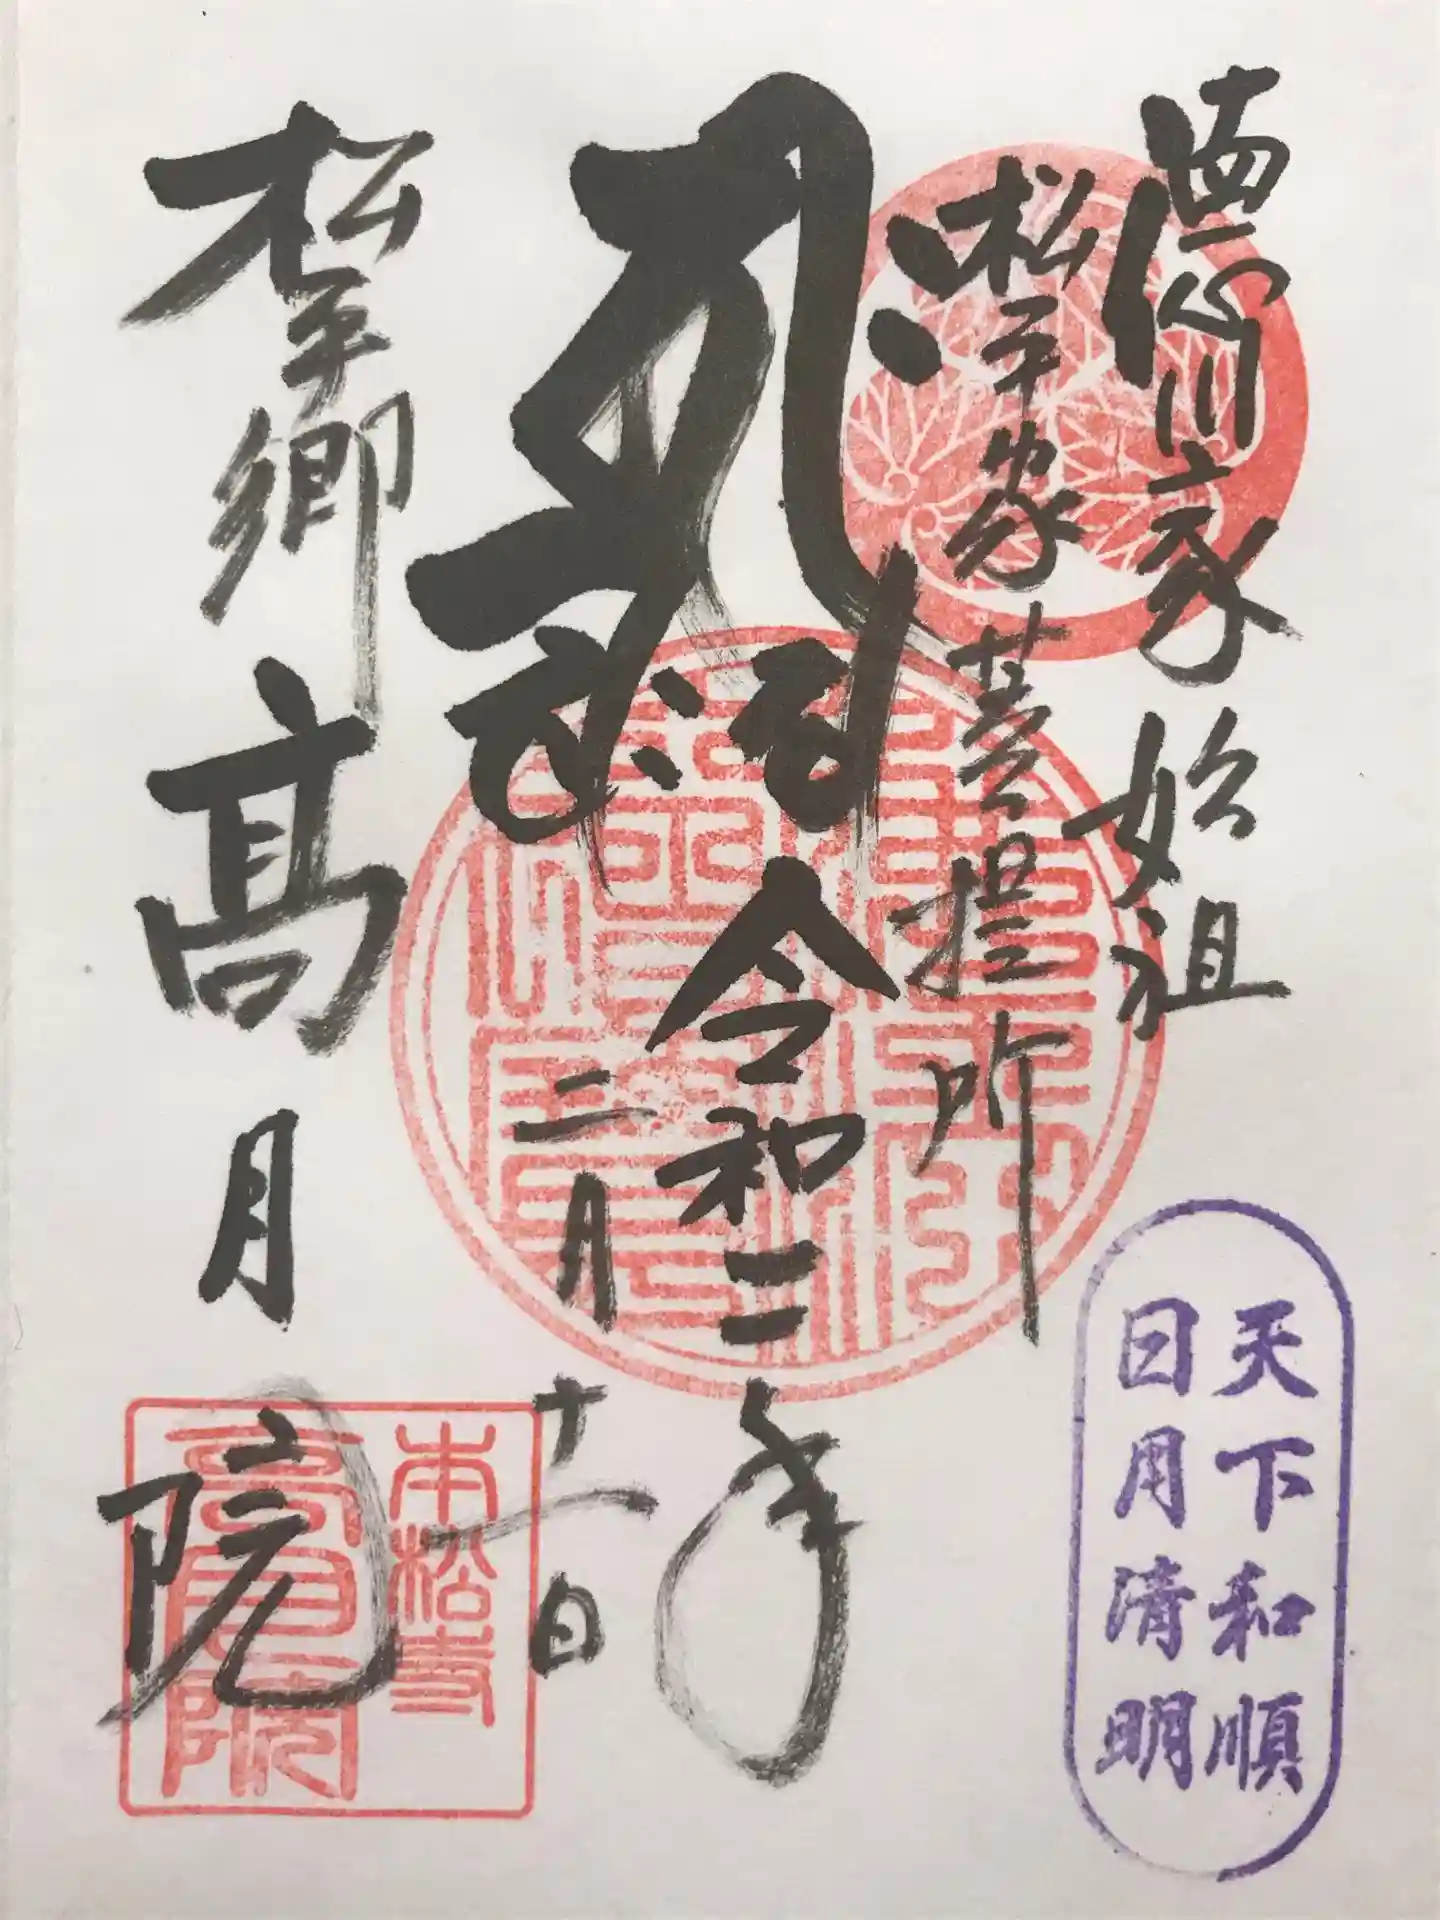 徳川家始祖
松平家菩提所
令和二年
二月十一日
松平郷
高月院
本松寺
高月院
天下和順
日月清明